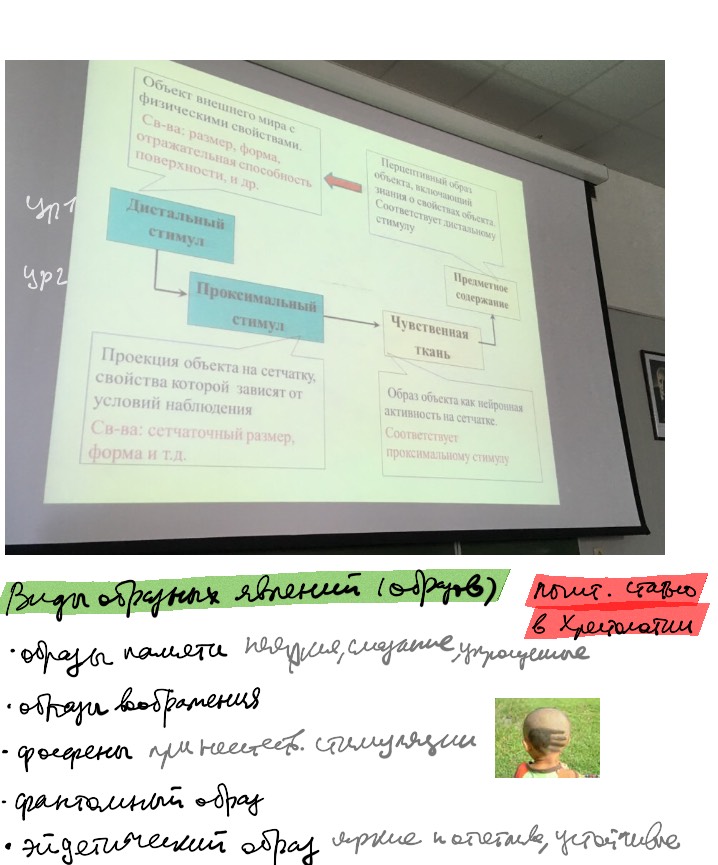 Объект внешнего мира с
физическими свойствами.
Св-ва: размер, форма,
отражательная способность
поверхности, и др.
Перцептивный образ
объекта, включающий
знания о свойствах объекта.
Соответствует дистальному
стимулу
ур1
Дистальный
стимул
ур2
Предметное
содержание
Проксимальный
стимул
Чувственная
ткань
Проекция объекта на сетчатку,
свойства которой зависят от
условий наблюдения
Св-ва: сетчаточный размер,
форма и т.д.
Образ объекта как нейронная
активность на сетчатке.
Соответствует
проксимальному стимулу
Виды образных явлений (образов)
почит. статью
в Хрестоматии
· образы памяти неяркие, смазанные, упрощенные
· образы воображения
· фосфены при неестеств. стимуляции
· фантомный образ
· эйдетический образ яркие и отчетливые, устойчивые